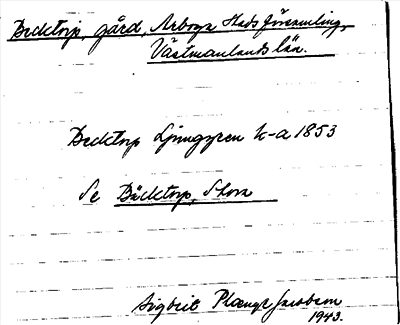 Becktorp, gård, Arboga Stadsförsamling,
Västmanlands län.
Becktorp Ljunggren k-a 1853
Se Bäcktorp, Stora
Sigbrit Plænge Jacobson
1943.